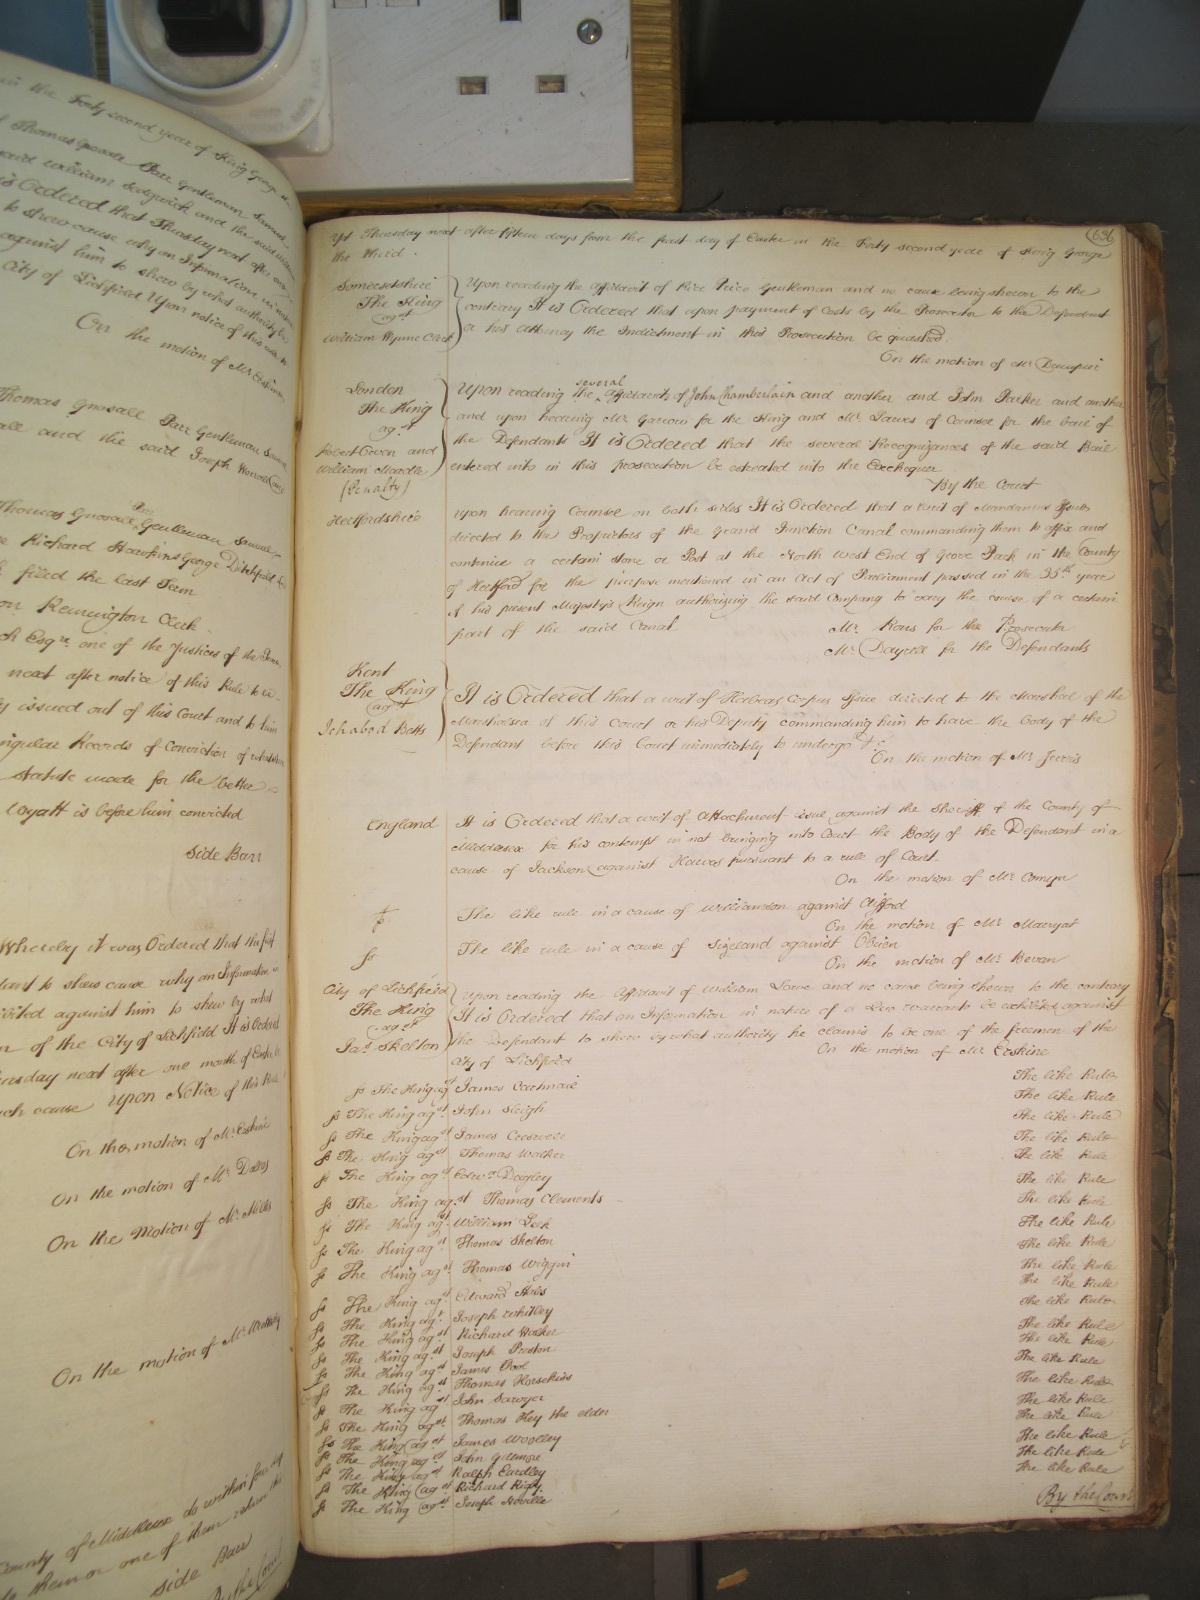 in the Forty second year of King George the
Thomas Gnosall Parr Gentleman Samuel
said William Sedgwick and the said
is Ordered that Thursday next after
to shew cause why an Information in
against him to shew by what authority he
City of Lichfield Upon notice of this rule
On the motion of Mr. Erskine
Thomas Gnosall Parr Gentleman
all and the said Joseph
Thomas Gnosall Parr Gentleman Samuel
Richard Hawkins George
filed the last Term
on Remington Clerk
Esqre. one of the Justices of the
next after notice of this Rule to
issued out of this Court and to him
singular Records of Conviction of
statute made for the better
Wyatt is before him convicted
Side Barr
Whereby it was Ordered that the first
to shew cause why an Information in
exhibited against him to shew by what
of the City of Lichfield It is Ordered
Thursday next after one month of Easter
such cause Upon Notice of this Rule
On the motion of Mr. Erskine
On the motion of Mr.
On the Motion of Mr. Mills
On the motion of Mr.
County of Middlesex do within four days
them or one of them return this
Side Barr
By the Court
636
Yet Thursday next after fifteen days from the feast day of Easter in the Forty second year of King George
the Third.
Somersetshire
The King
agst.
William Wynne Clerk
Upon reading the Affidavit of Rice Price Gentleman and no cause being shewn to the
contrary It is Ordered that upon payment of Costs by the Prosecutor to the Defendant
or his Attorney the Indictment in this Prosecution be quashed
On the motion of Mr. Dampier
London
The King
agst.
Robert Coven and
William Meadle
(Penalty)
Upon reading the several Affidavits of John Chamberlain and another and John Parker and another
and upon hearing Mr. Garrow for the King and Mr. Lawes of Counsel for the bail of
the Defendants It is Ordered that the several Recognizances of the said Bail
entered into in this prosecution be estreated into the Exchequer
By the Court
Hertfordshire
Upon hearing Counsel on both sides It is Ordered that a writ of Mandamus Issue
directed to the Proprietors of the Grand Junction Canal commanding them to affix and
continue a certain stone or Post at the North West End of Grove Park in the County
of Hertford for the purpose mentioned in an Act of Parliament passed in the 35th. year
of his present Majesty's Reign authorizing the said Company to vary the course of a certain
part of the said Canal
Mr. Rous for the Prosecutor
Mr. Dayrell for the Defendants
Kent
The King
agst.
Ichabod Betts
It is Ordered that a writ of Habeas Corpus Issue directed to the Marshal of the
Marshalsea of this Court or his Deputy commanding him to have the body of the
Defendant before this Court immediately to undergo &c.
On the motion of Mr. Jervis
England
It is Ordered that a writ of Attachment issue against the Sheriff of the County of
Middlesex for his contempt in not bringing into Court the Body of the Defendant in a
cause of Jackson against Hawes pursuant to a rule of Court
On the motion of Mr. Comyn
ss
The like rule in a cause of Williamson against Clifford
On the motion of Mr. Marryat
ss
The like rule in a cause of Sizeland against Obrien
On the motion of Mr. Bevan
City of Lichfield
The King
agst.
Jas. Skelton
Upon reading the Affidavit of William Lowe and no cause being shewn to the contrary
It is Ordered that an Information in nature of a Quo warranto be exhibited against
the Defendant to shew by what authority he claims to be one of the freemen of the
City of Lichfield
On the motion of Mr. Erskine
ss The King agst. James Cartmaie The like Rule
ss The King agst. John Sleigh The like Rule
ss The King agst. James Creswell The like Rule
ss The King agst. Thomas Walker The like Rule
ss The King agst. Edwd. Dagley The like Rule
ss The King agst. Thomas Clements The like Rule
ss The King agst. William Leek The like Rule
ss The King agst. Thomas Skelton The like Rule
ss The King agst. Thomas Wiggin The like Rule
ss The King agst. Edward The like Rule
ss The King agst. Joseph Whitley The like Rule
ss The King agst. Richard Walker The like Rule
ss The King agst. Joseph Preston The like Rule
ss The King agst. James Pool The like Rule
ss The King agst. Thomas Horsekins The like Rule
ss The King agst. John Sawyer The like Rule
ss The King agst. Thomas Key the elder The like Rule
ss The King agst. James Woolley The like Rule
ss The King agst. John Gilmore The like Rule
ss The King agst. Ralph Eardley The like Rule
ss The King agst. Richard Rigby The like Rule
ss The King agst. Joseph
By the Court